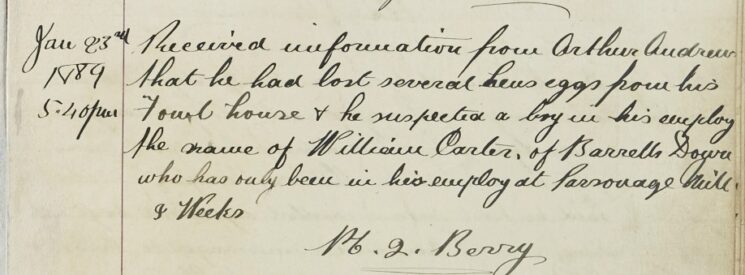 Jan 23rd Received information from Arthur Andrew
1889 that he had lost several hens eggs from his
5.40pm Fowl house & he suspected a boy in his employ
the name of William Carter, of Barretts Down
who has only been in his employ at Parsonage Mill
Weeks
Berry